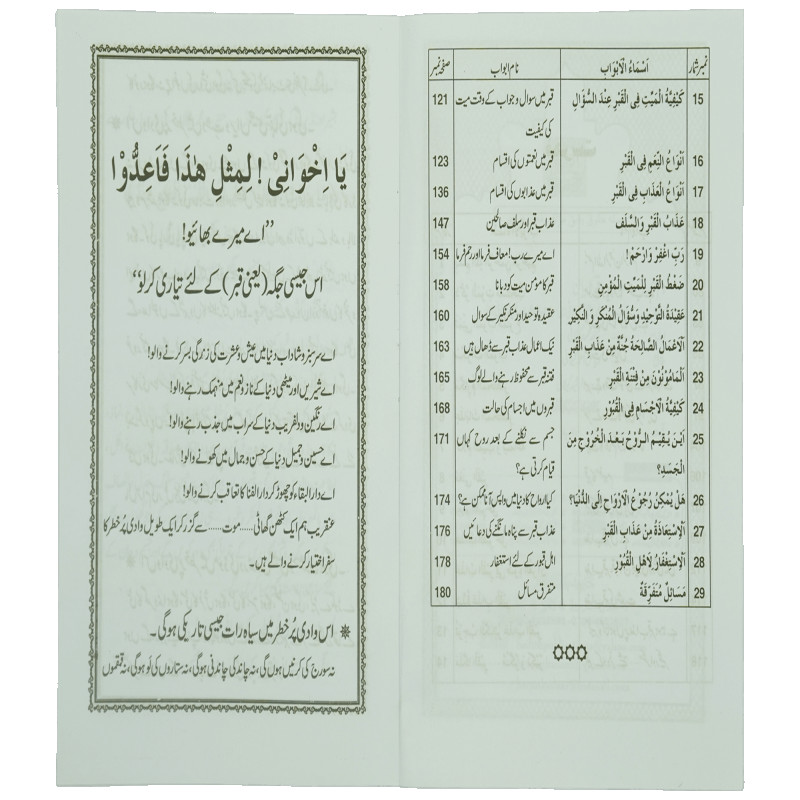 نمبر شمار اَسْمَاءُ الْاَبْوَابِ نام ابواب صفحہ نمبر
15 كَيْفِيَّةُ الْمَيِّتِ فِي الْقَبْرِ عِنْدَ السُّؤَالِ قبر میں سوال و جواب کے وقت میت 121
کی کیفیت
16 اَنْوَاعُ النِّعَمِ فِي الْقَبْرِ قبر میں نعمتوں کی اقسام 123
17 اَنْوَاعُ الْعَذَابِ فِي الْقَبْرِ قبر میں عذابوں کی اقسام 136
18 عَذَابُ الْقَبْرِ وَالسَّلَفِ عذاب قبر اور سلف صالحین 147
19 رَبِّ اغْفِرْ وَارْحَمْ! اے میرے رب! معاف فرما اور رحم فرما 154
20 ضَغْطُ الْقَبْرِ لِلْمَيِّتِ الْمُؤْمِنِ قبر کا مومن میت کو دبانا 158
21 عَقِيْدَةُ التَّوْحِيْدِ وَسُؤَالُ الْمُنْكَرِ وَ النَّكِيْرِ عقیدہ توحید اور منکر نکیر کے سوال 160
22 اَلْاَعْمَالُ الصَّالِحَةُ جُنَّةٌ مِنْ عَذَابِ الْقَبْرِ نیک اعمال عذاب قبر سے ڈھال ہیں 163
23 اَلْمَأْمُوْنُوْنَ مِنْ فِتْنَةِ الْقَبْرِ فتنہ قبر سے محفوظ رہنے والے لوگ 165
24 كَيْفِيَّةُ الْاَجْسَامِ فِي الْقُبُوْرِ قبروں میں اجسام کی حالت 168
25 اَيْنَ يُقِيْمُ الرُّوْحُ بَعْدَ الْخُرُوْجِ مِنَ جسم سے نکلنے کے بعد روح کہاں 171
الْجَسَدِ؟ قیام کرتی ہے؟
26 هَلْ يُمْكِنُ رُجُوْعُ الْاَرْوَاحِ اِلَى الدُّنْيَا؟ کیا ارواح کا دنیا میں واپس آنا ممکن ہے؟ 174
27 اَلْاِسْتِعَاذَةُ مِنْ عَذَابِ الْقَبْرِ عذاب قبر سے پناہ مانگنے کی دعائیں 176
28 اَلْاِسْتِغْفَارُ لِاَهْلِ الْقُبُوْرِ اہل قبور کے لئے استغفار 178
29 مَسَائِلٌ مُتَفَرِّقَةٌ متفرق مسائل 180
يَا اِخْوَانِيْ! لِمِثْلِ هٰذَا فَاَعِدُّوْا
”اے میرے بھائیو!
اس جیسی جگہ (یعنی قبر) کے لئے تیاری کر لو“
اے سرسبز و شاداب دنیا میں عیش و عشرت کی زندگی بسر کرنے والو!
اے شیریں اور میٹھی دنیا کے ناز و نعم میں منہمک رہنے والو!
اے رنگین و دلفریب دنیا کے سراب میں جذب رہنے والو!
اے حسین و جمیل دنیا کے حسن و جمال میں کھونے والو!
اے دار البقاء کو چھوڑ کر دار الفنا کا تعاقب کرنے والو!
عنقریب ہم ایک کٹھن گھاٹی......موت......سے گزر کر ایک طویل وادی پُر خطر کا
سفر اختیار کرنے والے ہیں۔
❋ اس وادی پُر خطر میں سیاہ رات جیسی تاریکی ہوگی۔
نہ سورج کی کرنیں ہوں گی، نہ چاند کی چاندنی ہوگی، نہ ستاروں کی لَو ہوگی، نہ قمقموں